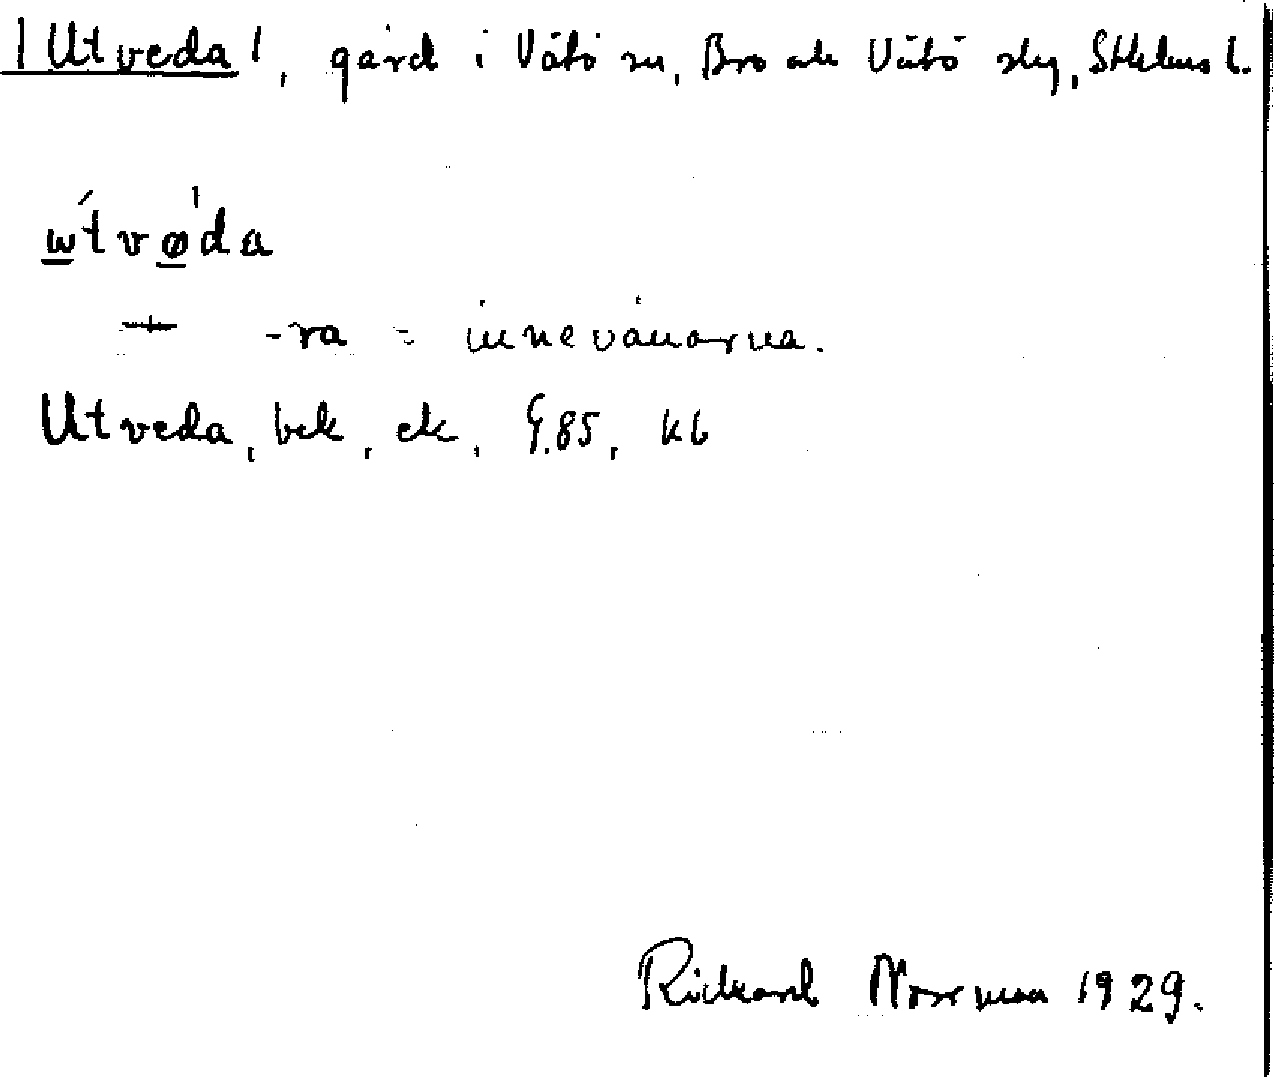 |Utveda|, gård i Vätö sn, Bro och Vätö skg, Sthlms l.
ẃtvø̍da
-ra = innevånarna.
Utveda, bek, ek, G.85, kb
Rickard Norrman 1929.